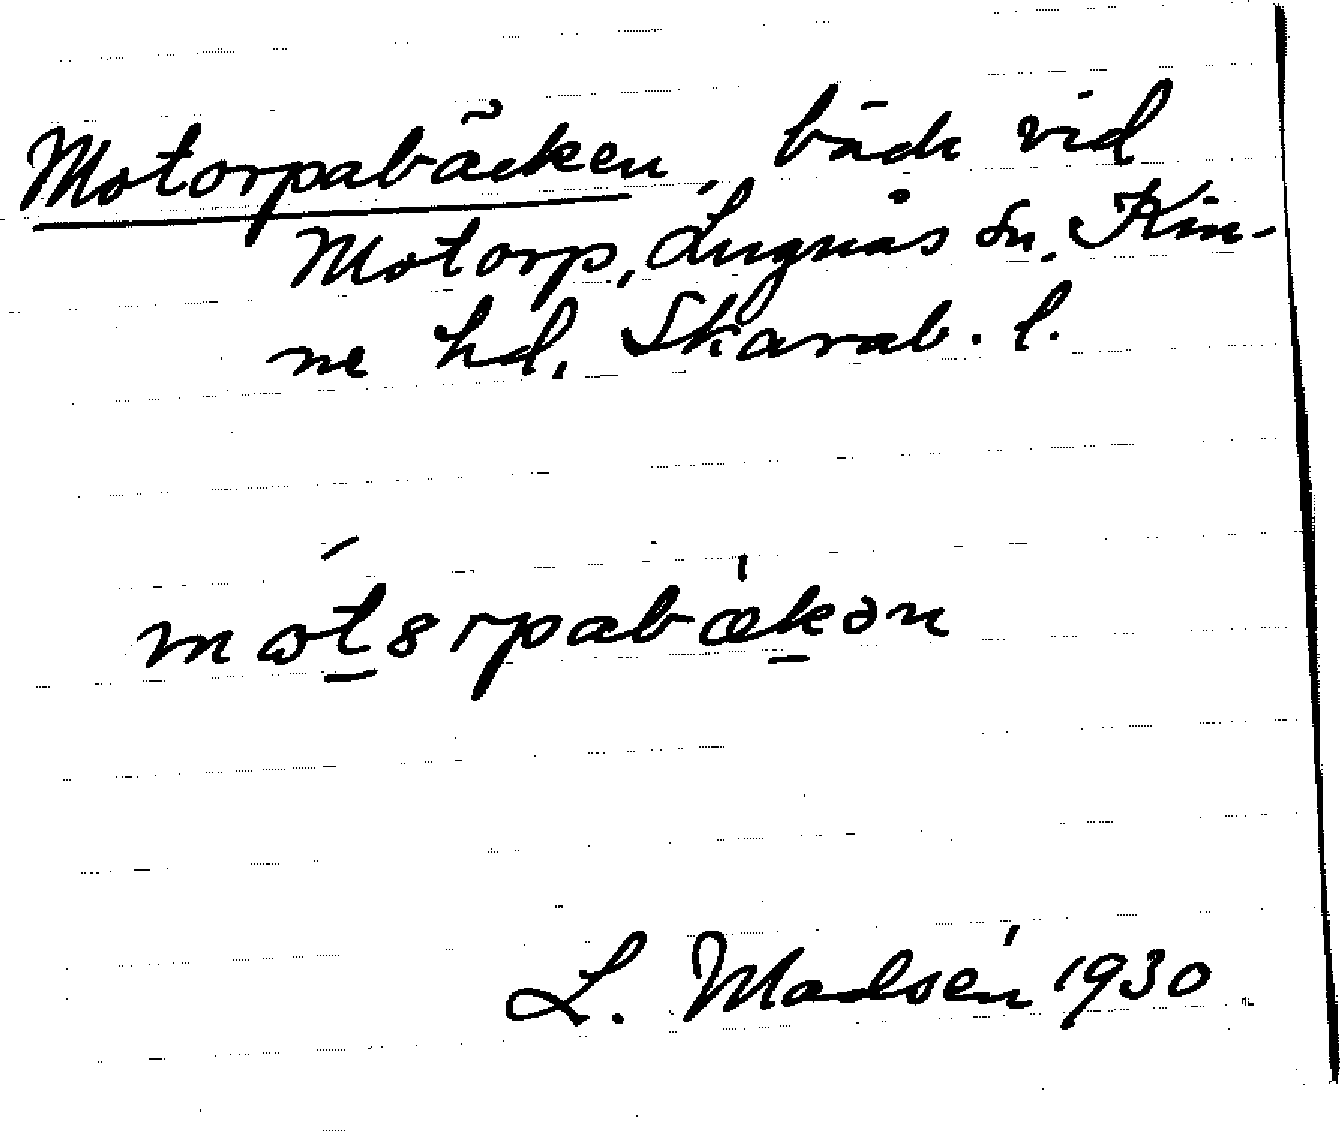 Motorpabäcken, bäck vid
Motorp, Lugnås sn, Kin-
ne hd, Skarab. l.
L. Madsén 1930